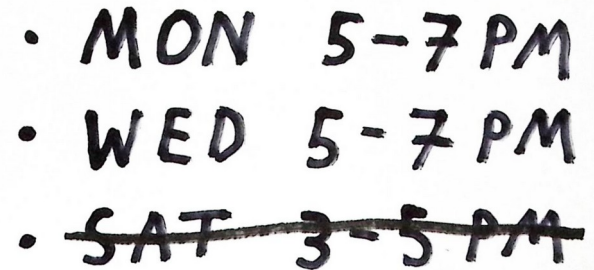 • MON 5-7 PM
• WED 5-7 PM
• ~~SAT 3-5 PM~~